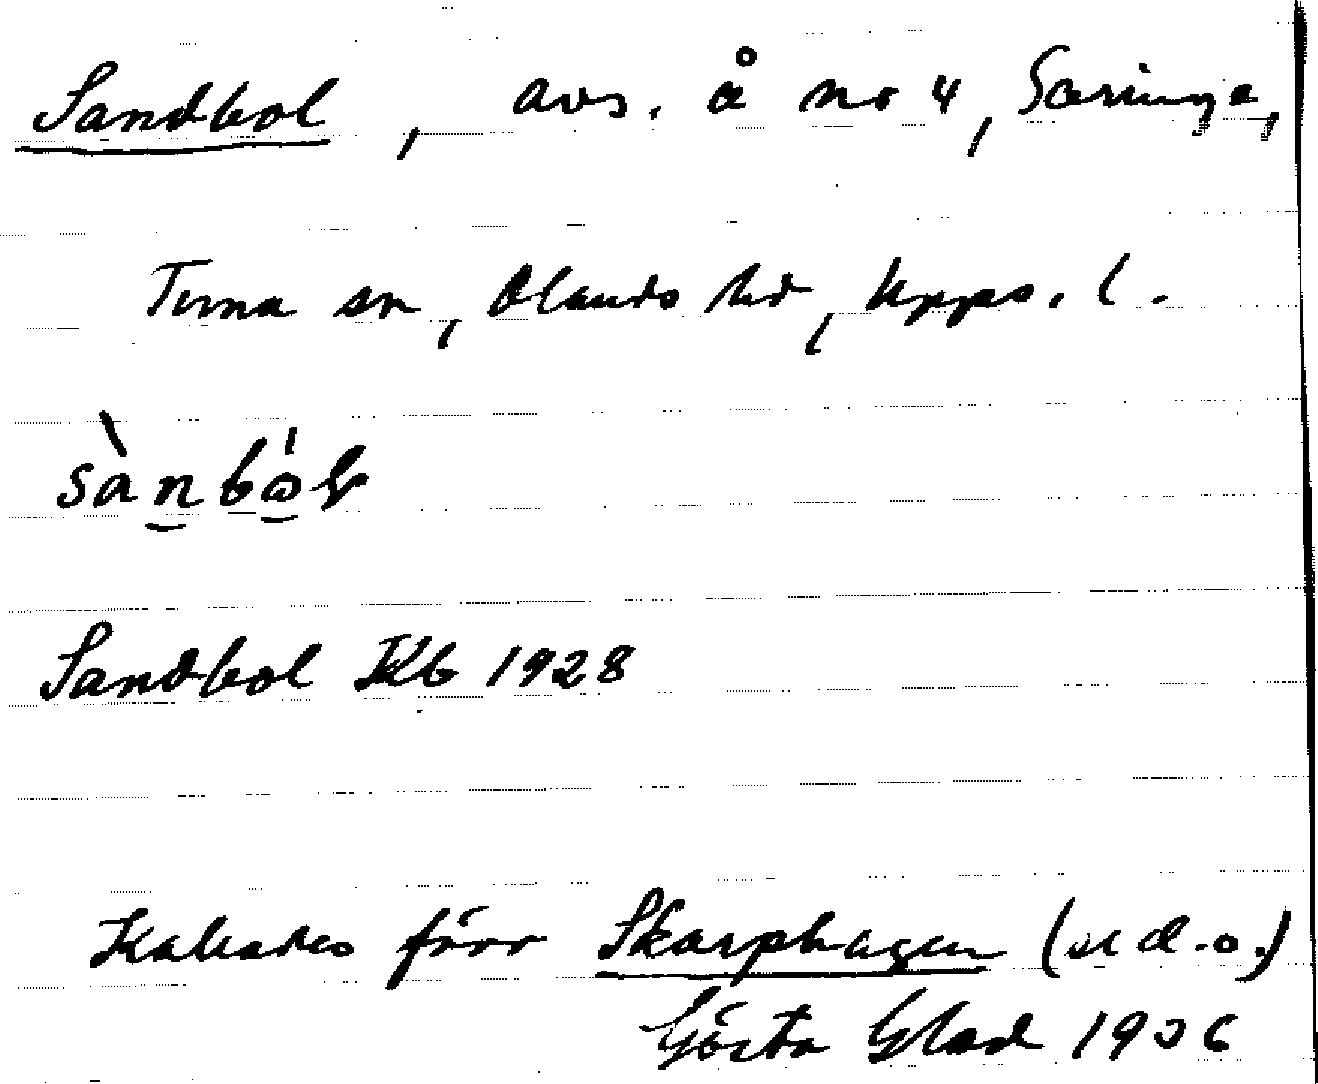 Sandbol, avs. å nr 4, Söringe,
Tuna sn, Olands hd, Upps. l.
sànbó̱l
Sandbol Kb 1928
Kallades förr Skarphagen (se d.o.)
Gösta Blad 1936